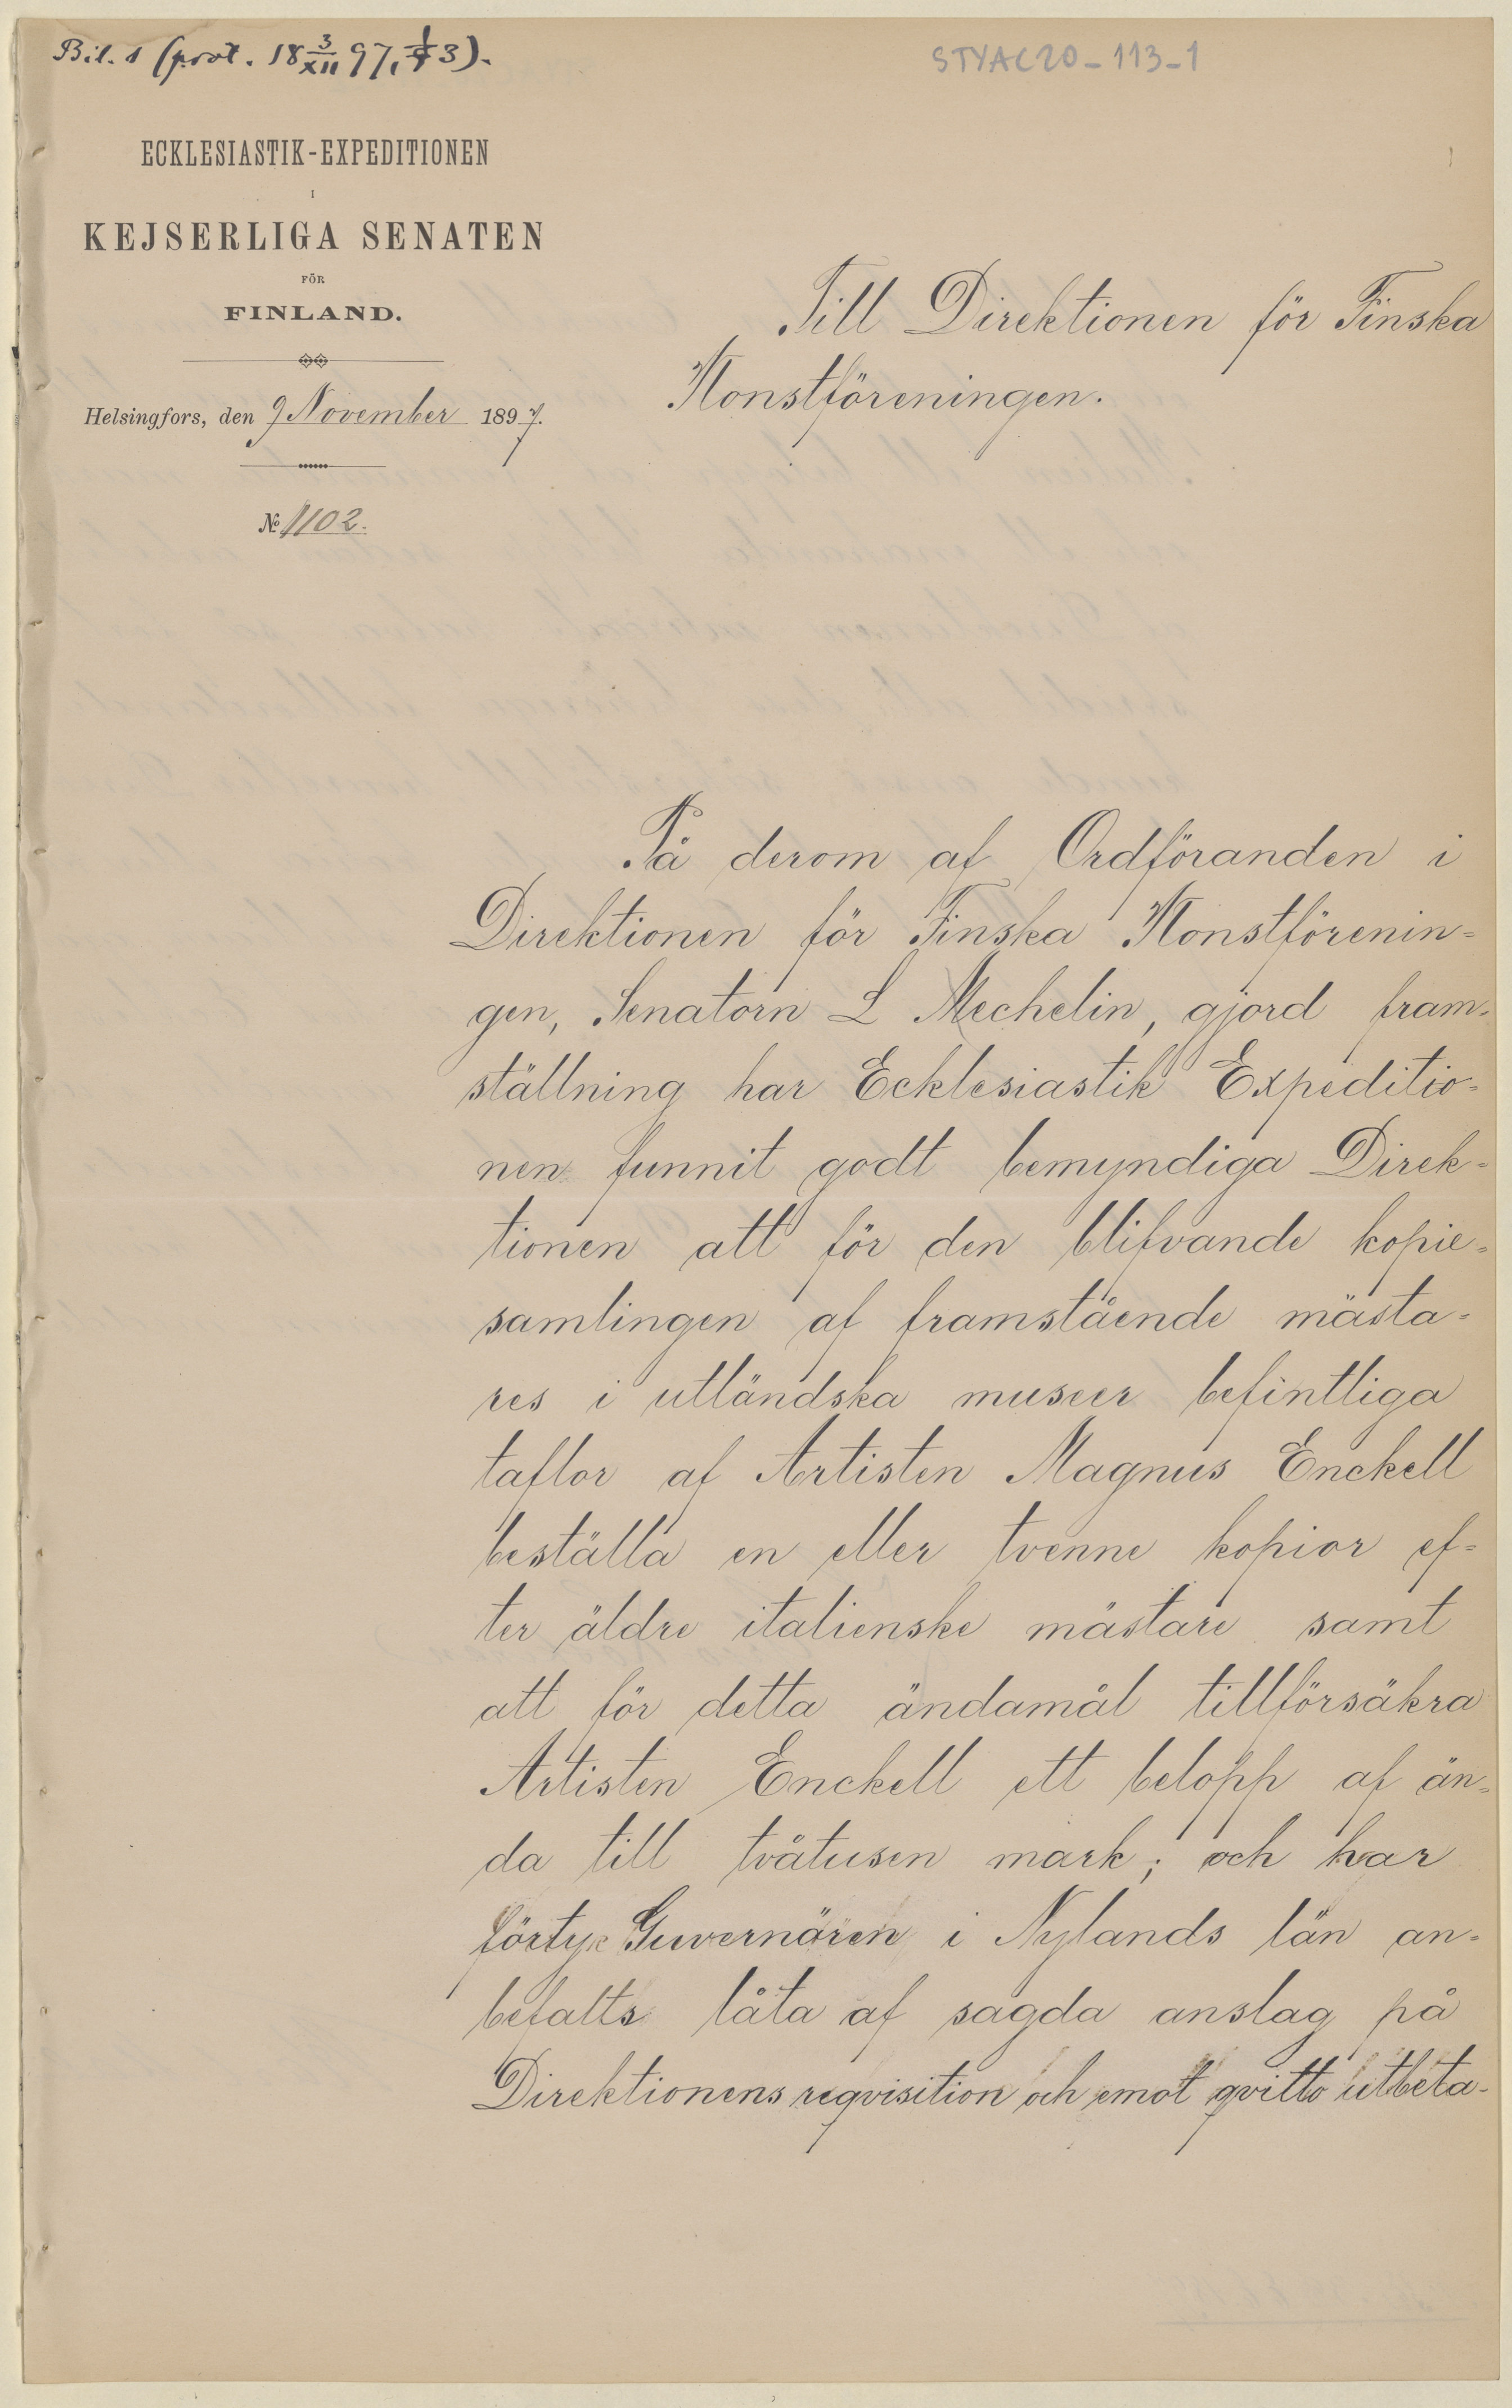 Bil. 1 (prot. 18 3/XII 97, § 3).
STYAC20-113-1
ECKLESIASTIK-EXPEDITIONEN
I
KEJSERLIGA SENATEN
FÖR
FINLAND.
Helsingfors, den 9 November 1897.
№ 1102.
Till Direktionen för Finska
Konstföreningen.
På derom af Ordföranden i
Direktionen för Finska Konstförenin-
gen, Senatorn L Mechelin, gjord fram-
ställning har Ecklesiastik Expeditio-
nen funnit godt bemyndiga Direk-
tionen att för den blifvande kopie-
samlingen af framstående mästa-
res i utländska museer befintliga
taflor af Artisten Magnus Enckell
beställa en eller tvenne kopior ef-
ter äldre italienske mästare samt
att för detta ändamål tillförsäkra
Artisten Enckell ett belopp af än-
da till tvåtusen mark; och har
förty Guvernören i Nylands län an-
befalts låta af sagda anslag på
Direktionens reqvisition och emot qvitto utbeta-